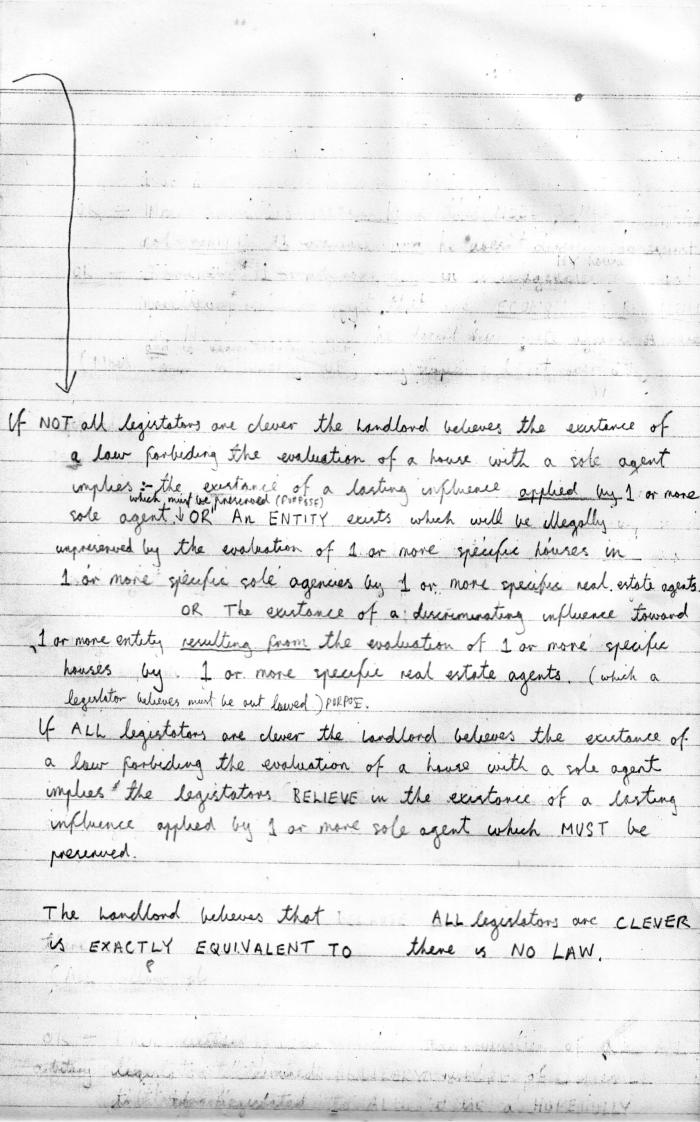 If NOT all legistators are clever the landlord believes the existance of
a law forbiding the evaluation of a house with a sole agent
implies :- the existance of a lasting influence applied by 1 or more
which must be preserved (PURPOSE)
sole agent ↓ OR AN ENTITY exists which will be illegally
unpreserved by the evaluation of 1 or more specific houses in
1 or more specific sole agencies by 1 or more specific real estate agents.
OR The existance of a discriminating influence toward
1 or more entity resulting from the evaluation of 1 or more specific
houses by 1 or more specific real estate agents. (which a
legislator believes must be out lawed) PURPOE.
If ALL legistators are clever the landlord believes the existance of
a law forbiding the evaluation of a house with a sole agent
implies the legistators BELIEVE in the existance of a lasting
influence applied by 1 or more sole agent which MUST be
preserved.
The landlord believes that ALL legislators are CLEVER
is EXACTLY EQUIVALENT TO there is NO LAW.